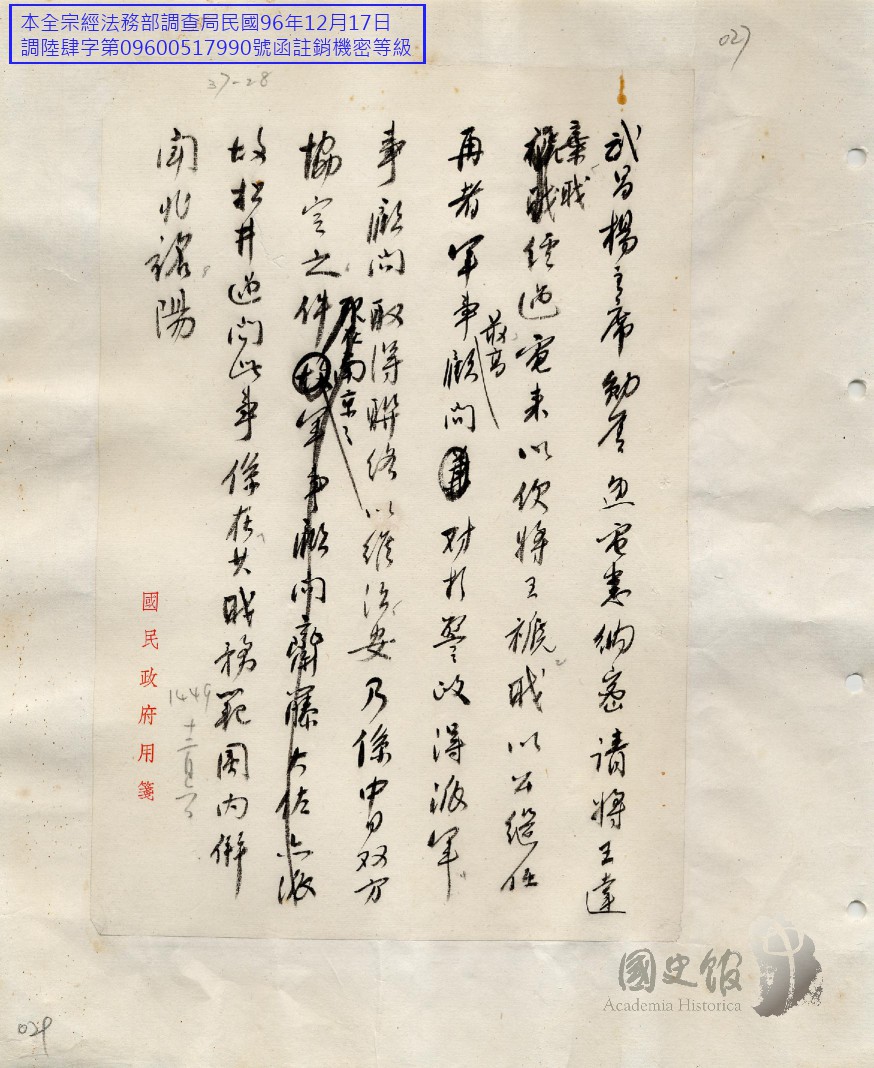 本全宗經法務部調查局民國96年12月17日
調陸肆字第09600517990號函註銷機密等級
027
37-28
武昌楊主席勳鑒電悉納密請將王達
棄職
褫職經過電來以便將王褫職以公繼任
再者軍事顧問對於警政得派軍
最高
事顧問取得聯絡以維治安乃係中日双方
協定之件故軍事顧問齋藤大佐亦派
現在南京之
故松井過問此事係在其職務範圍内併
聞兆銘陽
國民政府用箋
1449
國史館
Academia Historica
029